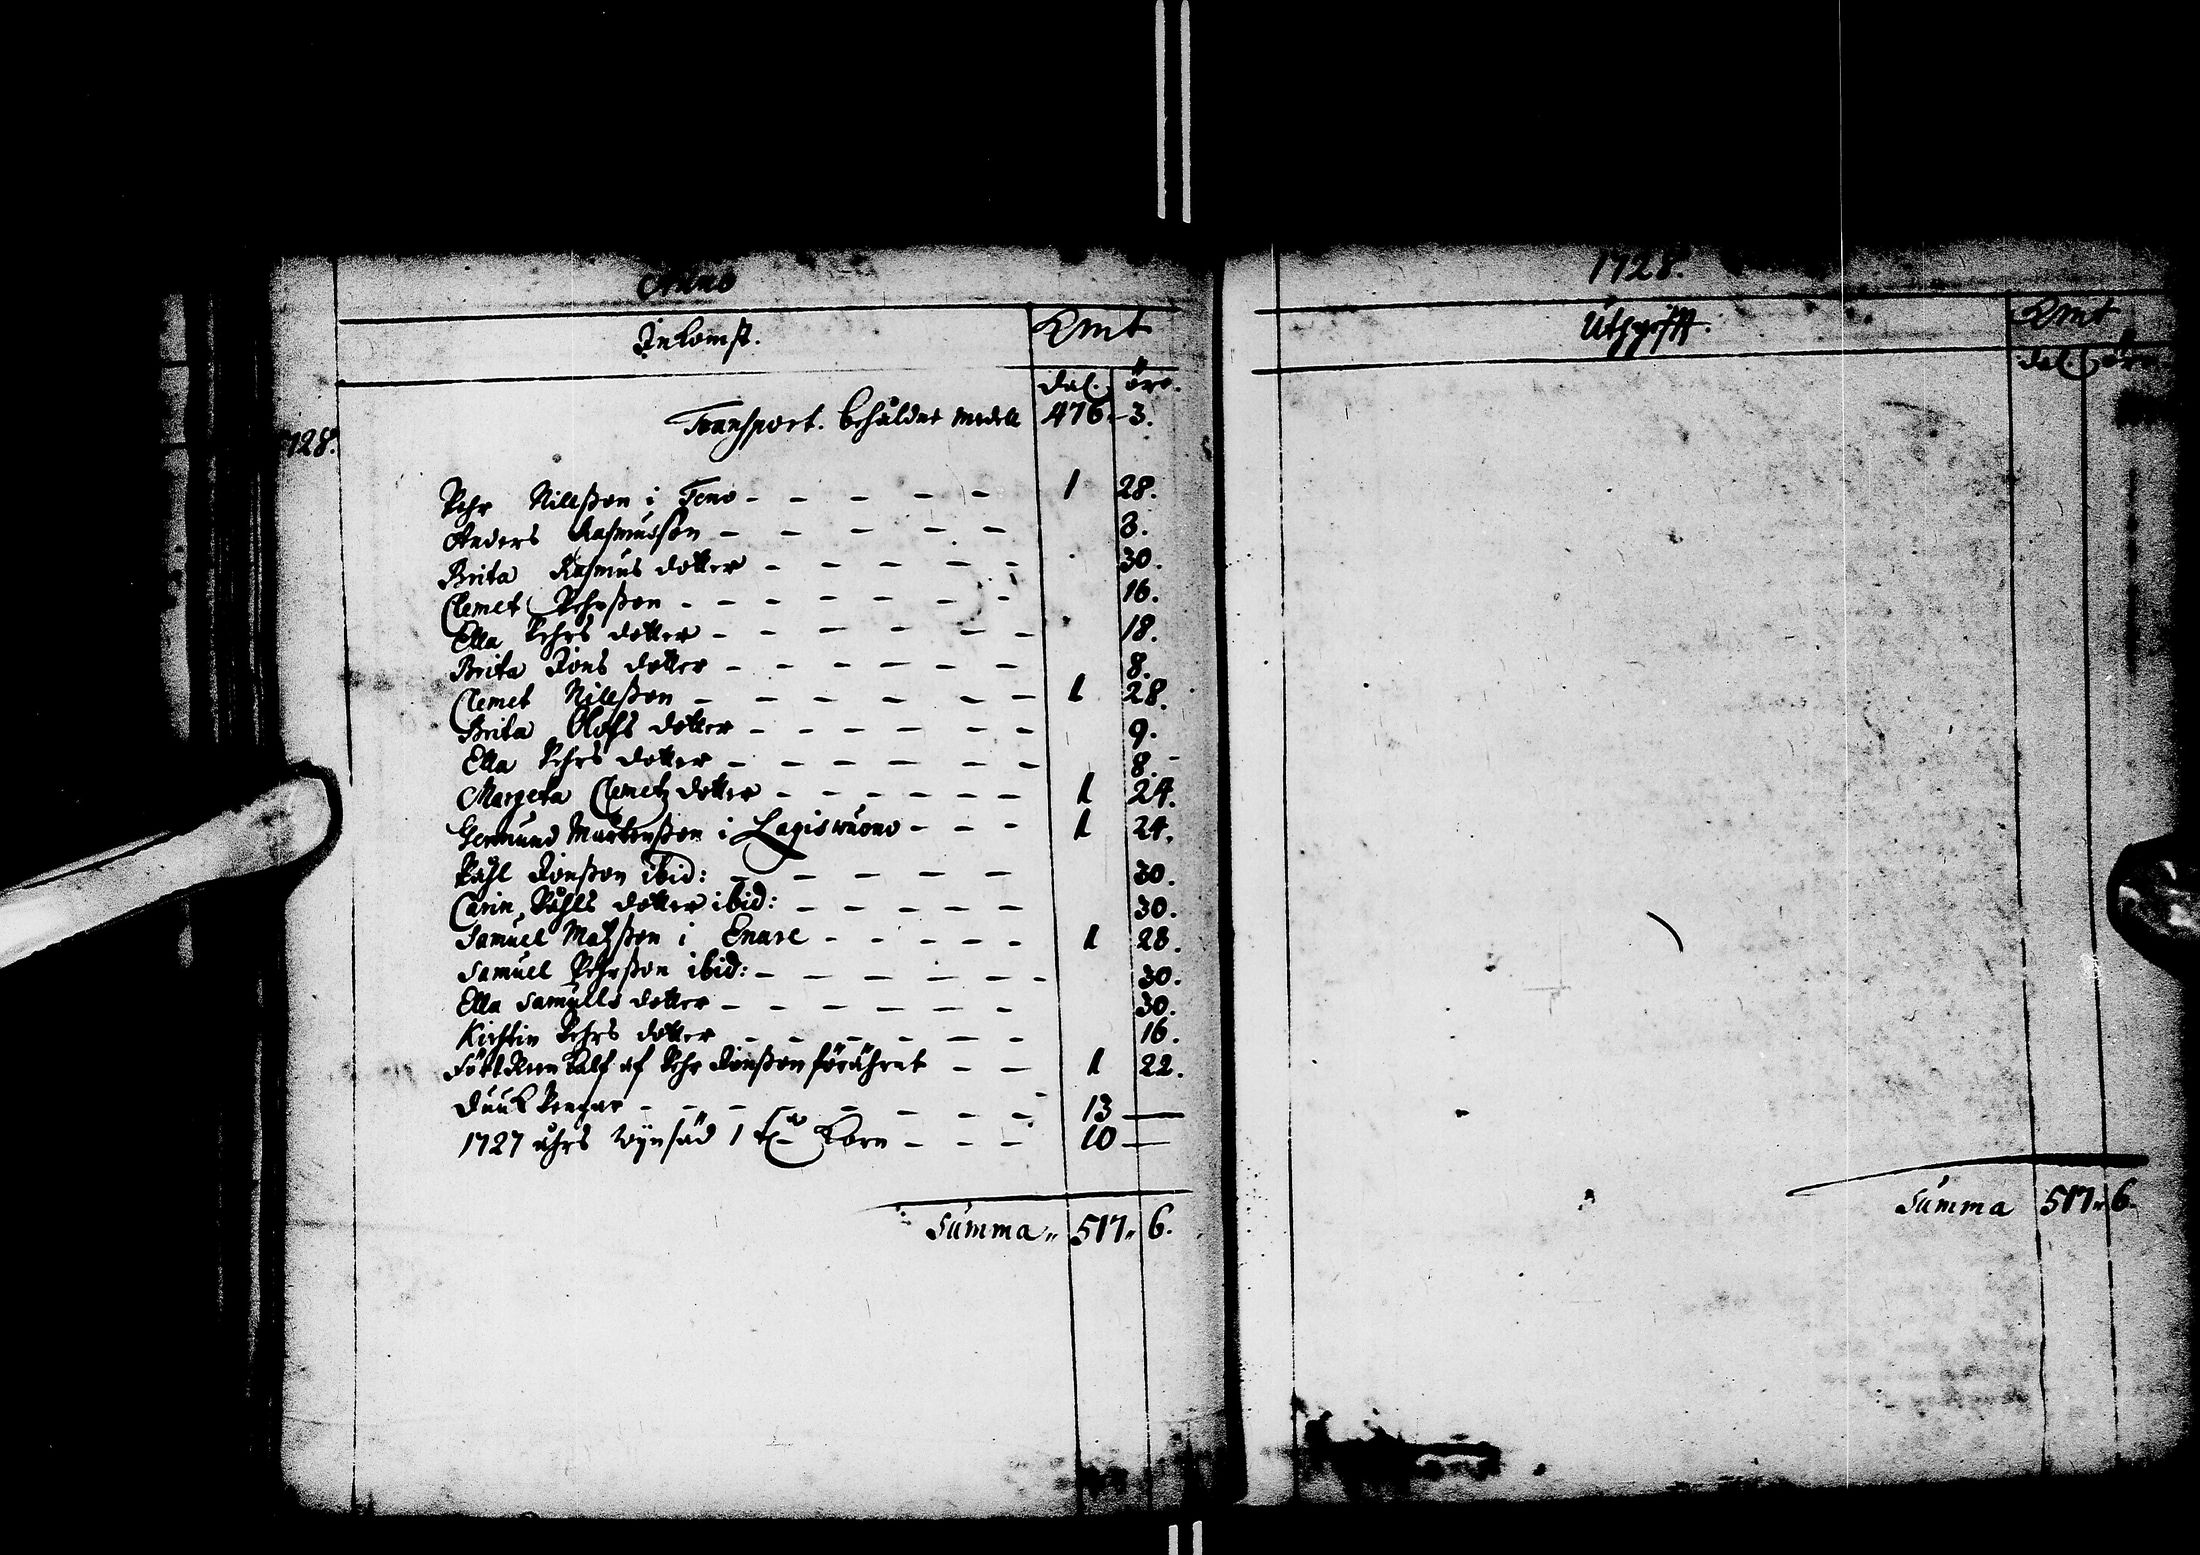 Anno
Inkomst. Kmt
dal. öre.
Transport. behåldne medell 476. 3.
1728.
Pehr Nillßon i Teno - - - - - 1 28.
Anders Rasmusson - - - - - 3.
Brita Rasmus dotter - - - - - 30.
Clemet Pehrßon - - - - - - - 16.
Ella Pehrs dotter - - - - - - 18.
Brita Jons dotter - - - - - - 8.
Clemet Nillßon - - - - - - 1 28.
Brita Olofs dotter - - - - - - 9.
Ella Pehrs dotter - - - - - - 8.
Margeta Clemetz dotter - - - - - - 1 24.
Germund Mårtenßon i Lagiswuono - - - 1 24.
Påhl Jonßon ibid: - - - - - - 30.
Carin Påhls dotter ibid: - - - - - 30.
Samuel Matzßon i Enare - - - - - 1 28.
Samuel Pehrßon ibid: - - - - - - 30.
Ella Samuells dotter - - - - - - 30.
Kirstin Pehrs dotter - - - - - - 16.
Ren kalf af Pehr Jonßon förährat - - 1 22.
Duuk Pengar - - - - - - - 13 —
1727 åhrs wijnsäd 1 Korn - - - 10 —
Summa " 517 " 6.
1728.
Uthgifft. Kmt
dal. öre.
Summa 517 " 6.